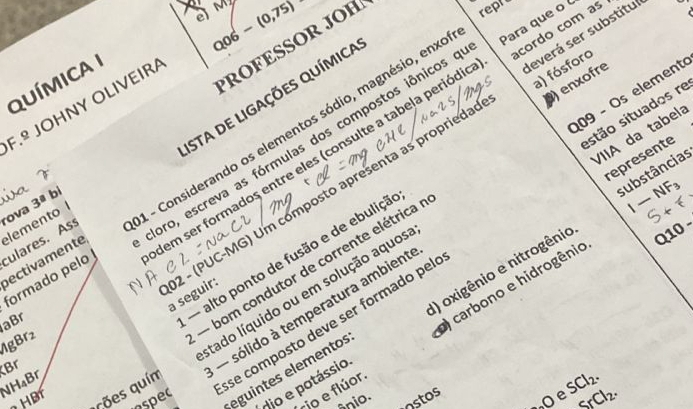 QUÍMICA I
OF.º JOHNY OLIVEIRA
rova 3ª bi
elemento
culares. As
pectivamente
formado pelo
aBr
MgBr₂
KBr
NH₄Br
HBr
ções quím
espec
e)
Q06 – (0,75)
PROFESSOR JOH
LISTA DE LIGAÇÕES QUÍMICAS
Q01 - Considerando os elementos sódio, magnésio, enxofre
e cloro, escreva as fórmulas dos compostos iônicos que
podem ser formados entre eles (consulte a tabela periódica).
Q02 - (PUC-MG) Um composto apresenta as propriedades
a seguir:
1 — alto ponto de fusão e de ebulição;
2 — bom condutor de corrente elétrica no
estado líquido ou em solução aquosa;
3 — sólido à temperatura ambiente.
Esse composto deve ser formado pelos
seguintes elementos:
dio e potássio.
io e flúor.
ênio.
d) oxigênio e nitrogênio.
carbono e hidrogênio.
ostos
O e SCl₂.
SrCl₂.
repr
Para que o
acordo com as
deverá ser substituí
a) fósforo
enxofre
Q09 - Os elemento
estão situados res
VIIA da tabela
represente
substâncias:
I — NF₃
Q10 -